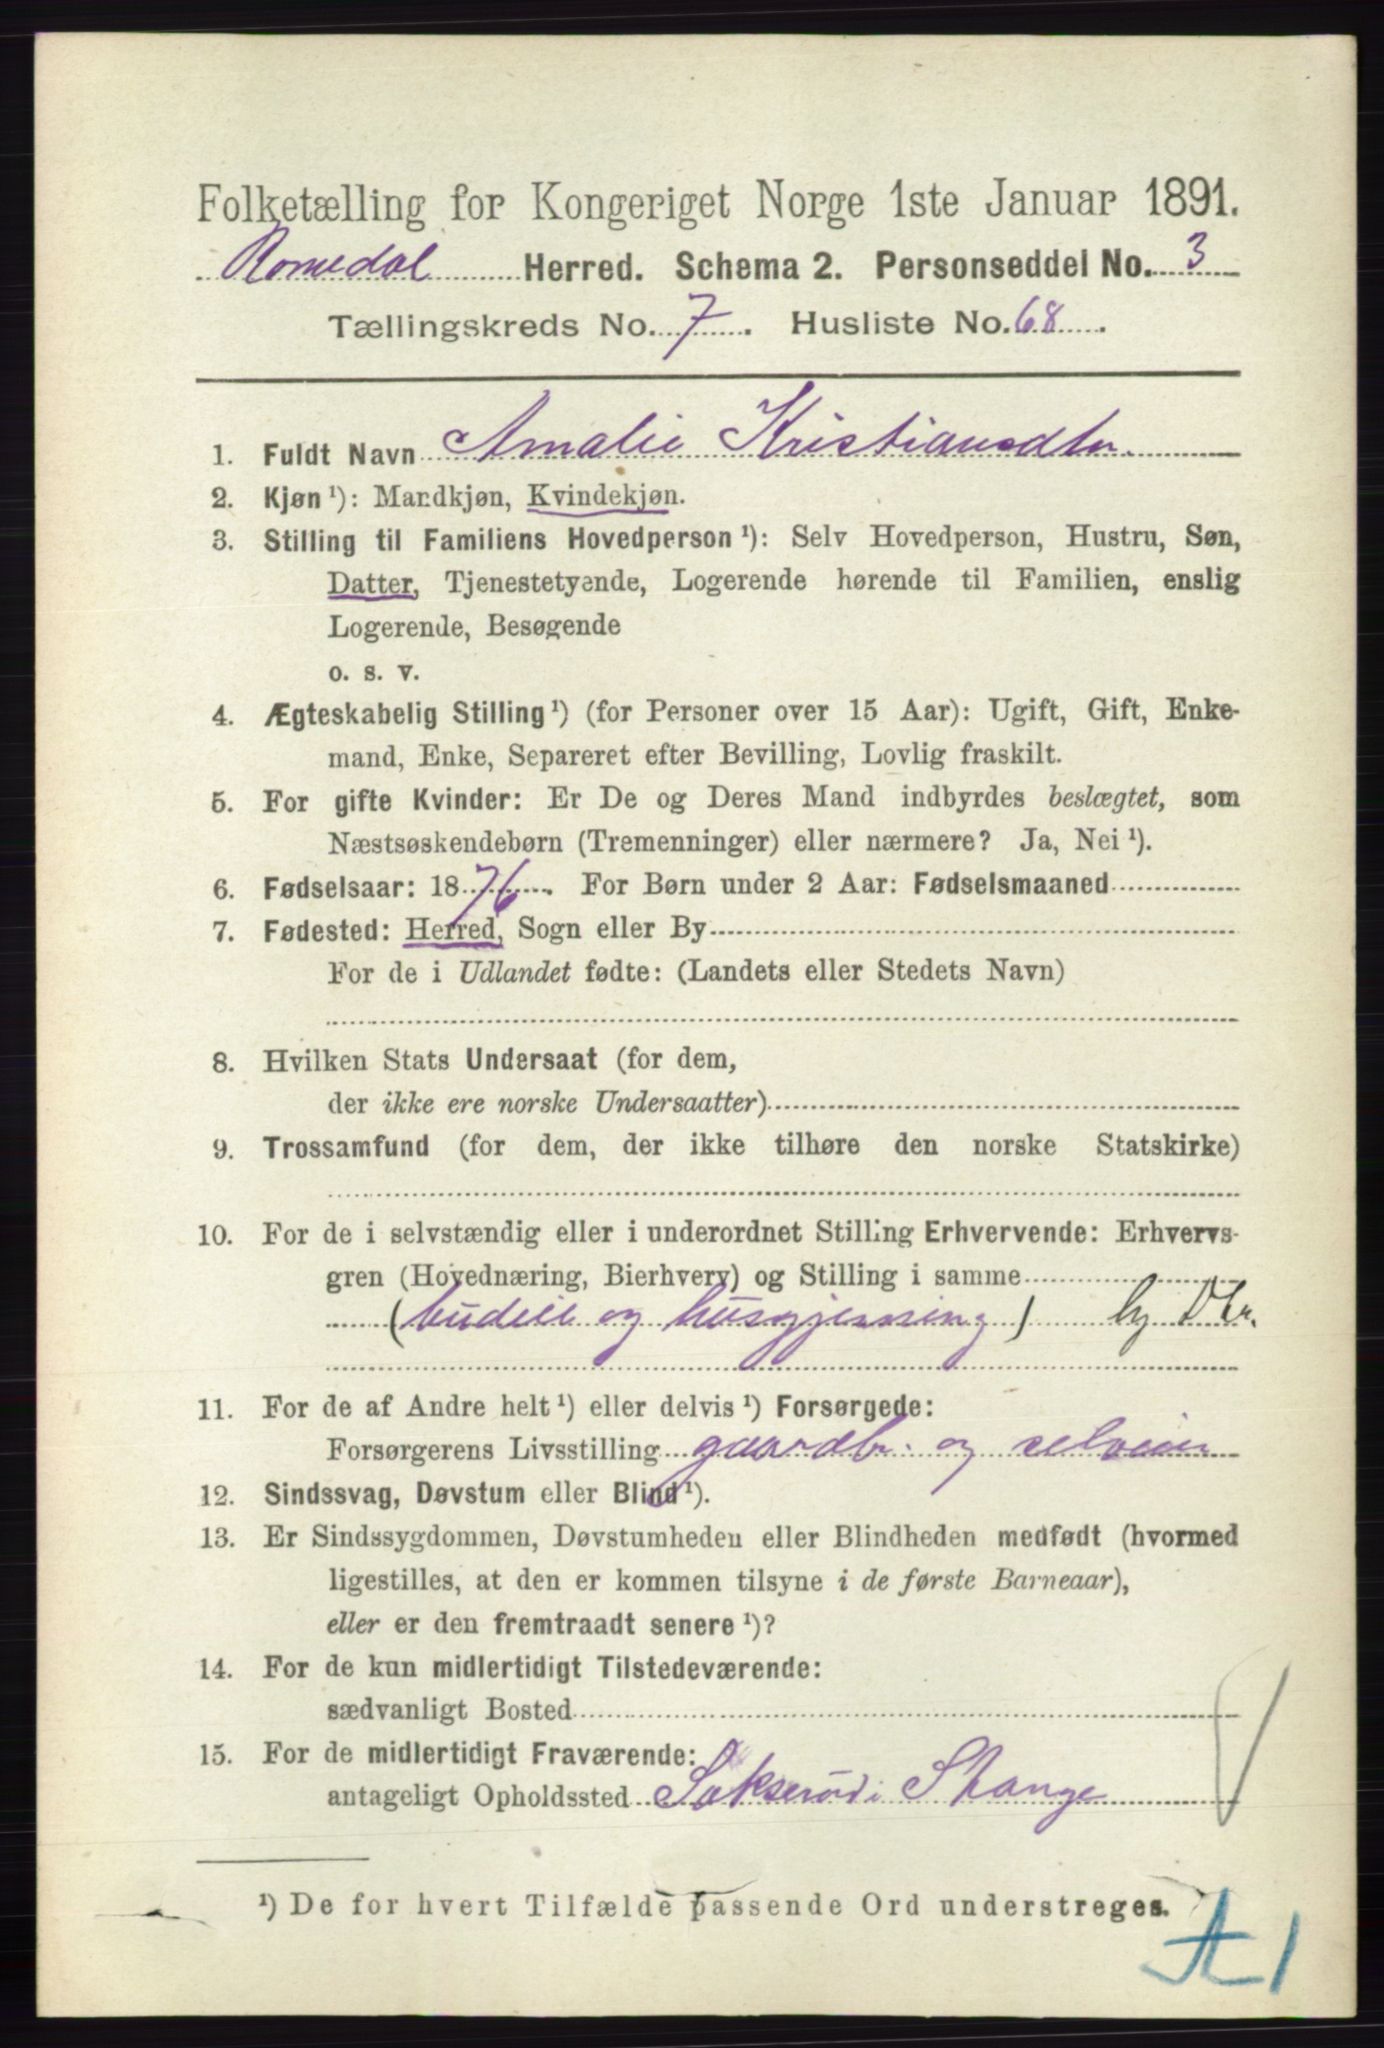 Folketælling for Kongeriget Norge 1ste Januar 1891.
Romedal Herred. Schema 2. Personseddel No. 3
Tællingskreds No. 7. Husliste No. 68.
1. Fuldt Navn Amalie Kristiansdtr.
2. Kjøn ¹): Mandkjøn, Kvindekjøn.
3. Stilling til Familiens Hovedperson ¹): Selv Hovedperson, Hustru, Søn,
Datter, Tjenestetyende, Logerende hørende til Familien, enslig
Logerende, Besøgende
o. s. v.
4. Ægteskabelig Stilling ¹) (for Personer over 15 Aar): Ugift, Gift, Enke-
mand, Enke, Separeret efter Bevilling, Lovlig fraskilt.
5. For gifte Kvinder: Er De og Deres Mand indbyrdes beslægtet, som
Næstsøskendebørn (Tremenninger) eller nærmere? Ja, Nei ¹).
6. Fødselsaar: 1876. For Børn under 2 Aar: Fødselsmaaned
7. Fødested: Herred, Sogn eller By
For de i Udlandet fødte: (Landets eller Stedets Navn)
8. Hvilken Stats Undersaat (for dem,
der ikke ere norske Undersaatter)
9. Trossamfund (for dem, der ikke tilhøre den norske Statskirke)
10. For de i selvstændig eller i underordnet Stilling Erhvervende: Erhvervs-
gren (Hovednæring, Bierhverv) og Stilling i samme
(budeie og husgjerning) hj Dtr.
11. For de af Andre helt ¹) eller delvis ¹) Forsørgede:
Forsørgerens Livsstilling gaardbr. og selveier
12. Sindssvag, Døvstum eller Blind ¹).
13. Er Sindssygdommen, Døvstumheden eller Blindheden medfødt (hvormed
ligestilles, at den er kommen tilsyne i de første Barneaar),
eller er den fremtraadt senere ¹)?
14. For de kun midlertidigt Tilstedeværende:
sædvanligt Bosted
15. For de midlertidigt Fraværende:
antageligt Opholdssted Sakserud i Stange
¹) De for hvert Tilfælde passende Ord understreges.